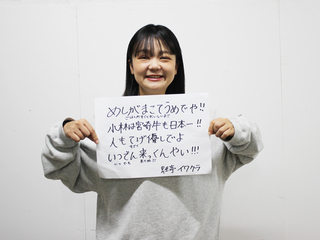 めしがまこてうめでや!!
小林は宮崎牛も日本一!!
人もてげ優しでよ
いつでん来っくんやい!!!
イワクラ